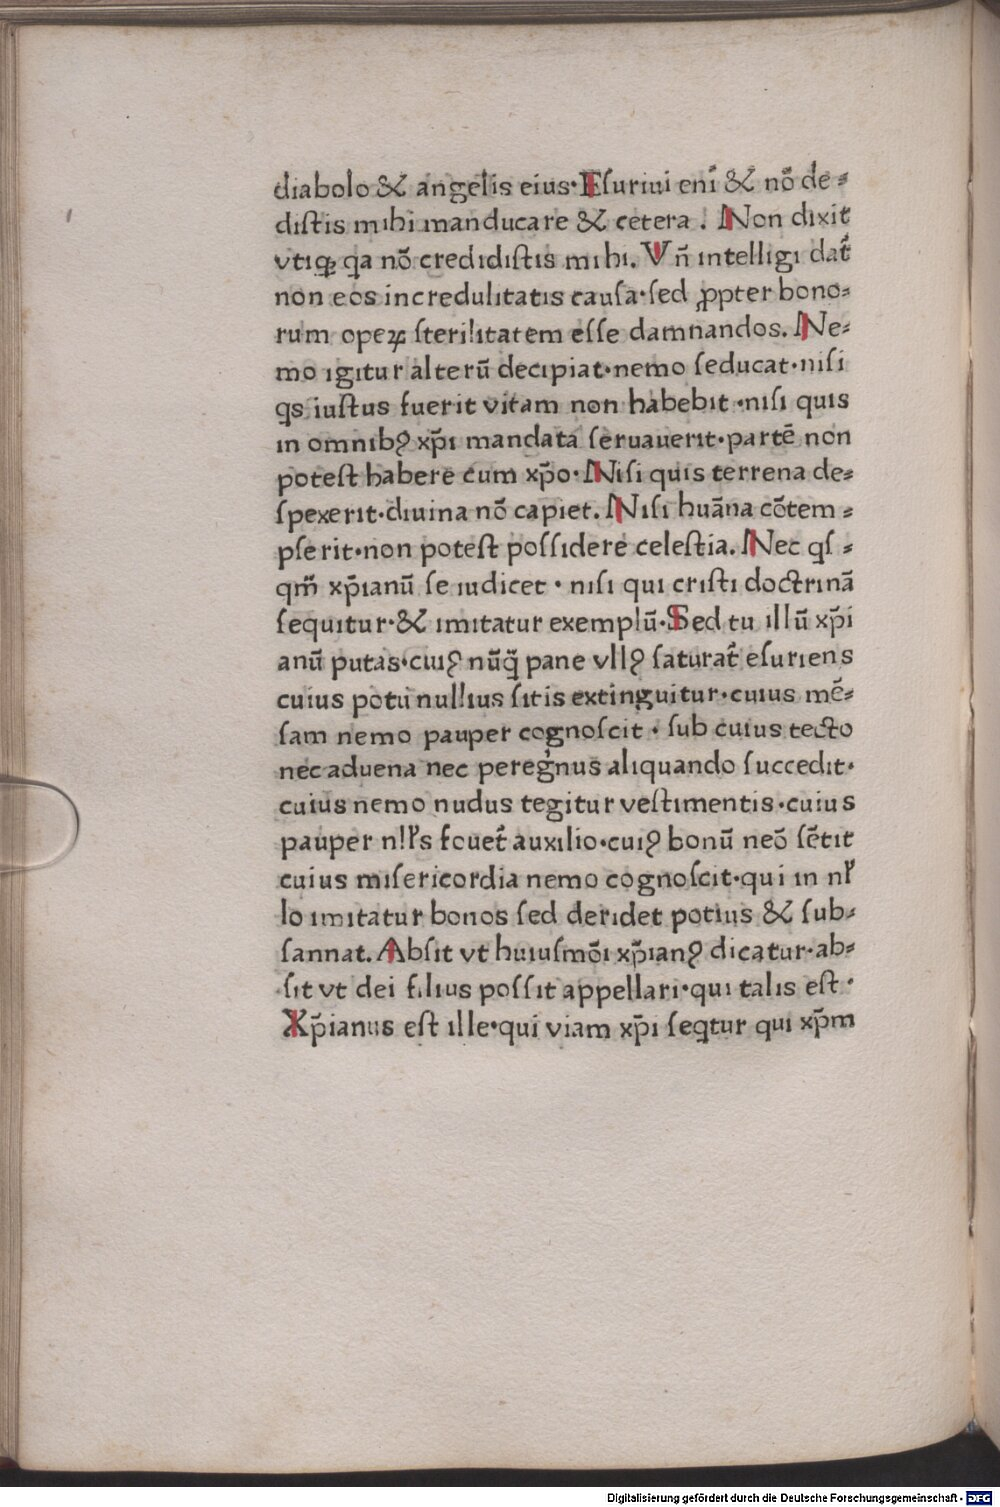 diabolo & angelis eius·Eſuriui eni̅ & nō de⸗
diſtis mihi manducare & cetera . Non dixit
vtiqꝫ q̄a nō credidiſtis mihi. Vn̄ intelligi dat᷑
non eos incredulitatis cauſa·ſed ꝓpter bono⸗
rum opeꝝ ſterilitatem eſſe damnandos. Ne⸗
mo igitur alterū decipiat·nemo ſeducat·niſi
qs iuſtus fuerit vitam non habebit ·niſi quis
in omnibꝰ xp̄i mandata ſeruauerit·partē non
poteſt habere cum xp̄o· Niſi quis terrena de⸗
ſpexerit·diuina nō capiet. Niſi huāna cōtem ⸗
pſerit·non poteſt poſſidere celeſtia. Nec qſ ⸗
qm̄ xp̄ianū ſe iudicet · niſi qui criſti doctrinā
ſequitur·& imitatur exemplū·Sed tu illū xp̄i
anū putas·cuiꝰ nūq̄ pane vllꝰ ſaturat᷑ eſuriens
cuius potu nullius ſitis extinguitur·cuius mē⸗
ſam nemo pauper cognoſcit · ſub cuius tecto
nec aduena nec peregͥnus aliquando ſuccedit·
cuius nemo nudus tegitur veſtimentis·cuius
pauper nll̓s fouet᷑ auxilio·cuiꝰ bonū neō ſētit
cuius miſericordia nemo cognoſcit·qui in nl̓
lo imitatur bonos ſed deridet potius & ſub⸗
ſannat. Abſit vt huiuſmōi xp̄ianꝰ dicatur·ab⸗
ſit vt dei filius poſſit appellari·qui talis eſt ·
Xp̄ianus eſt ille·qui viam xp̄i ſeqtur qui xp̄m
Digitalisierung gefördert durch die Deutsche Forschungsgemeinschaft - DFG